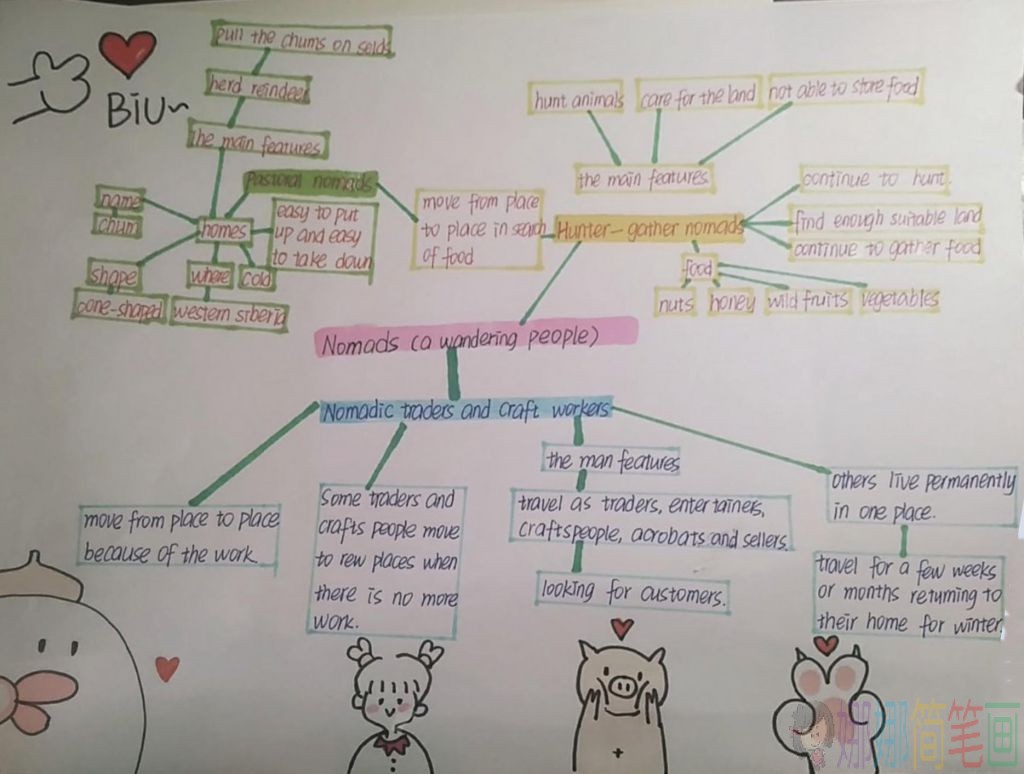 pull the chums on selds
herd reindeer
the main features
BiU~
hunt animals
care for the land
not able to store food
the main features
name
chum
Pastoral nomads
homes
easy to put
up and easy
to take down
shape
where
cold
cone-shaped
western siberia
move from place
to place in seach
of food
Hunter-gather nomads
continue to hunt.
find enough suitable land
continue to gather food
food
nuts
honey
wild fruits
vegetables
Nomads (a wandering people)
Nomadic traders and craft workers
move from place to place
because of the work.
Some traders and
crafts people move
to rew places when
there is no more
work.
the man features
travel as traders, entertainers,
craftspeople, acrobats and sellers.
looking for customers.
others live permanently
in one place.
travel for a few weeks
or months returning to
their home for winter.
娜娜简笔画